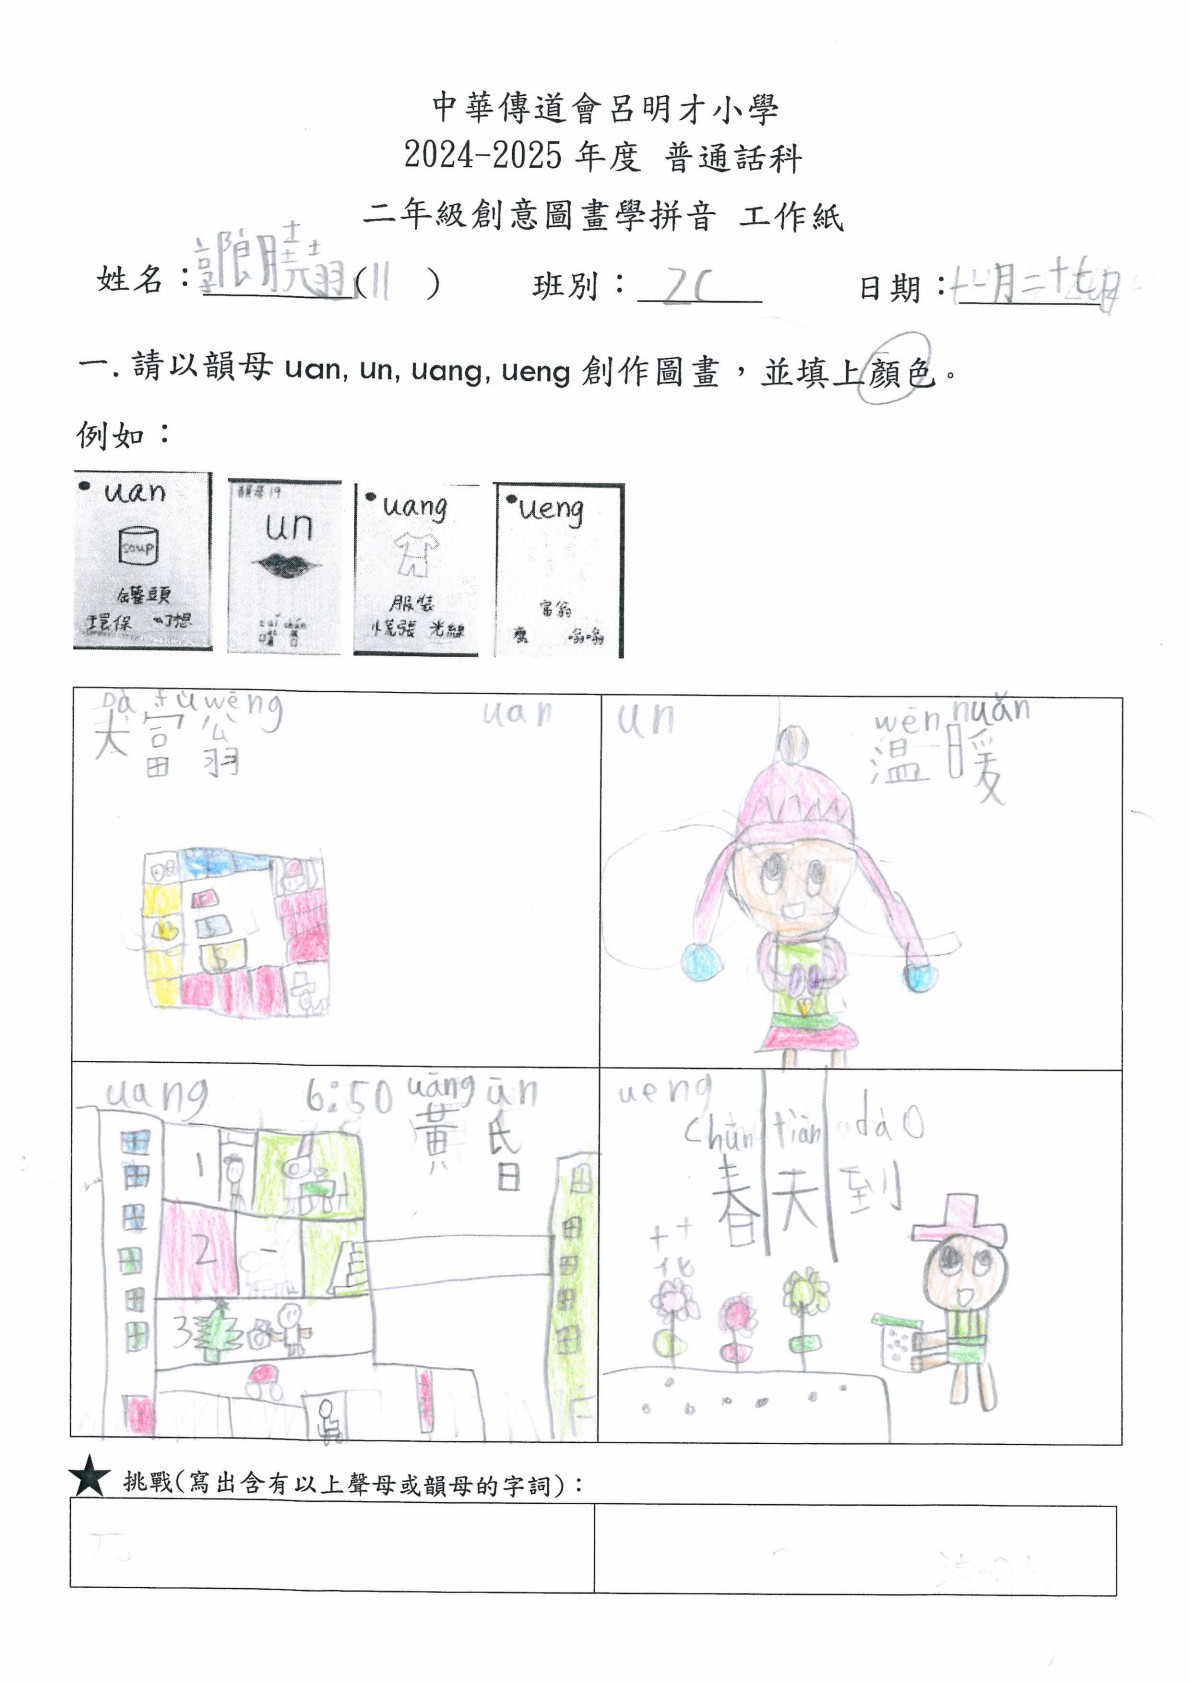 中華傳道會呂明才小學
2024-2025 年度 普通話科
二年級創意圖畫學拼音 工作紙
姓名：曉翹(11 ) 班別：2C 日期：十一月二十七日
一. 請以韻母 uan, un, uang, ueng 創作圖畫，並填上顏色。
例如：
uan
soup
罐頭
環保 幻想
韻母19
un
zuǐ chún
嘴唇
uang
服裝
慌張 光線
ueng
富翁
甕 嗡嗡
Dà fù wēng uan
大富翁
un wēn nuǎn
溫暖
uang 6:50 uāng ūn
黃昏
1
2
3
ueng
chūn tiān dào
春天到
花
★ 挑戰(寫出含有以上聲母或韻母的字詞)：